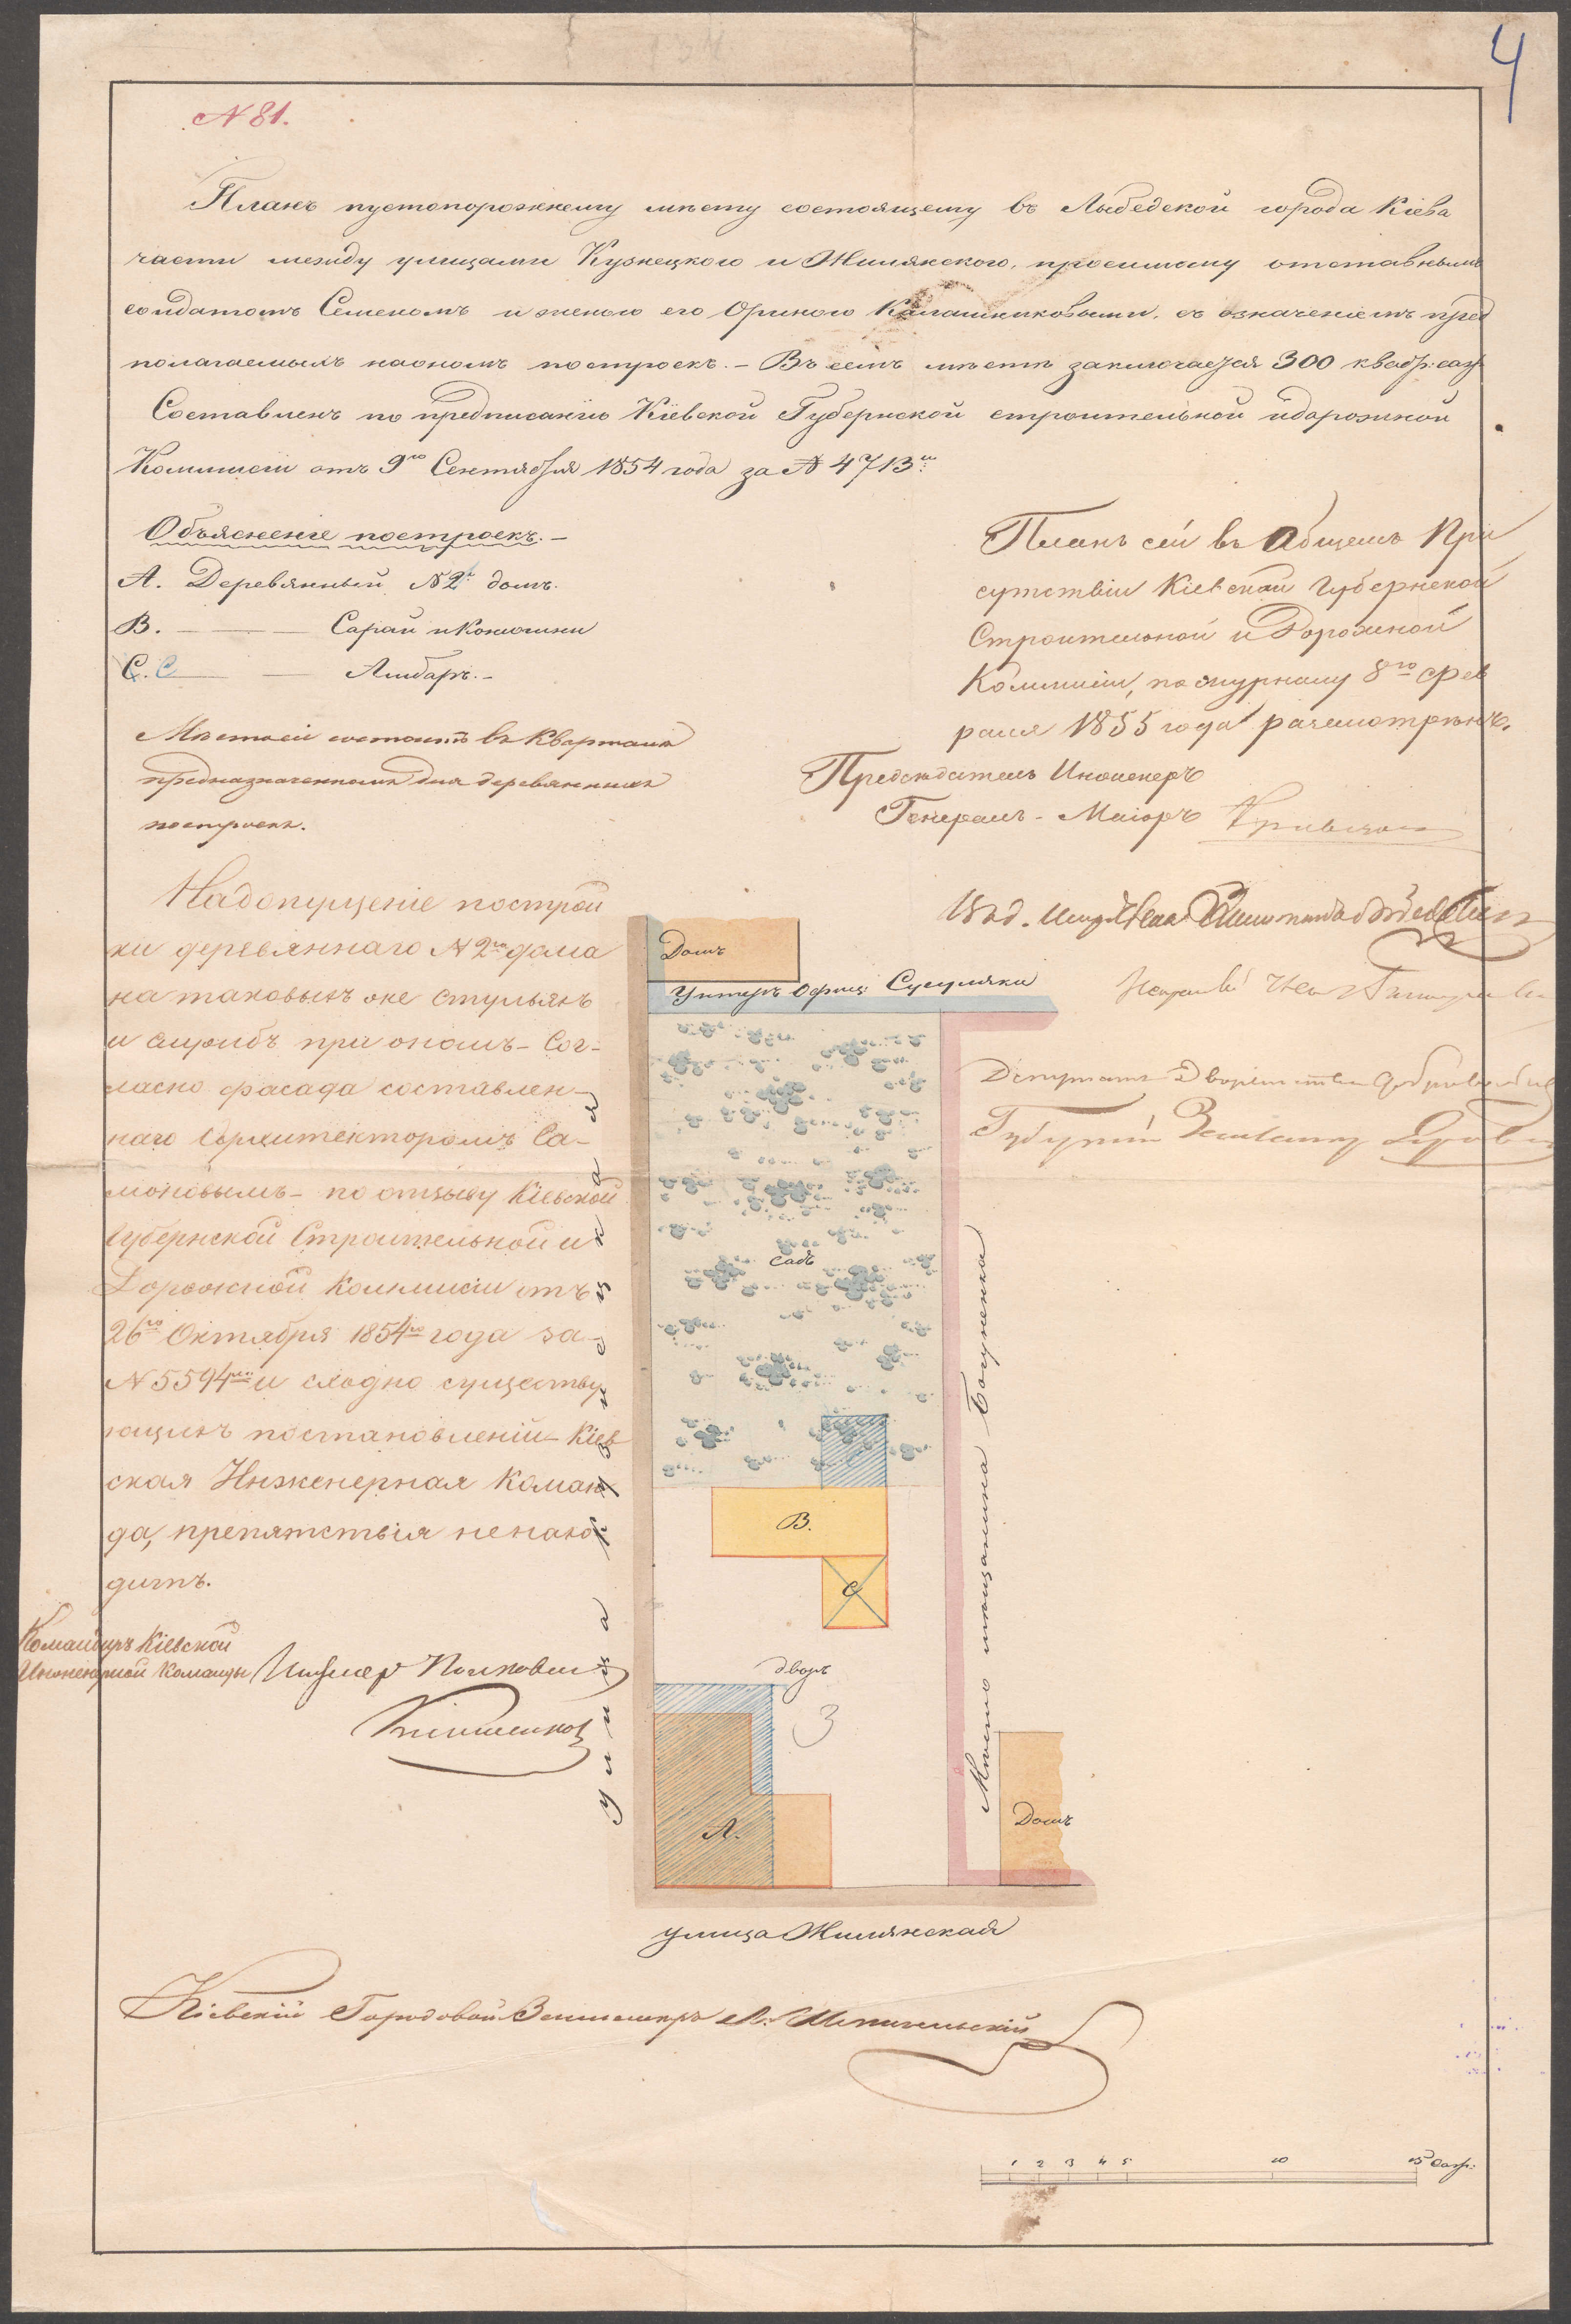 4
№ 81.
Планъ пустопорожнему мѣсту состоящему въ Лыбедской города Кіева
части между улицами Кузнецкого и Жилянского, просимому отставнымъ
солдатомъ Семеномъ и женою его Ориною Калашниковыми, съ означеніемъ пред
полагаемыхъ наономъ построекъ. – Въ семъ мѣстѣ заключается 300 квадр: саж
Составленъ по предписанію Кіевской Губернской строительной идорожной
Коммисіи отъ 9го Сентября 1854 года за № 4713м:
Объясненіе построекъ. –
А. Деревянный №2й домъ.
В. — — Сарай и Конюшни
С. С — — Амбаръ. –
Мѣстосіе состоитъ въ Кварталѣ
предназначенномъ для деревянныхъ
построекъ.
Планъ сей въ Общемъ При
сутствіи Кіевской Губернской
Строительной и Дорожной
Коммисіи, по журналу 8го Фев
раля 1855 года разсмотрѣнъ.
Предсѣдатель Инженеръ
Генералъ-Маіоръ
Надопущеніе построй
ки деревяннаго №2го дома
на таковыхъ же стульяхъ
и службъ при ономъ – Сог-
ласно фасада составлен-
наго Архитекторомъ Са-
моновымъ – по отзыву Кіевской
Губернской Строительной и
Дорожной Коммисіи отъ
26го Октября 1854го года за-
№ 5594мъ и сходно существу
ющихъ постановленій – Кіев
ская Инженерная Коман
да, препятствія ненахо
дитъ.
Командиръ Кіевской
Инженерной Команды Инженер Полковни
Домъ
Унтеръ Офиц: Сусуляки
Депутатъ Дворянства
садъ
Улица Кузнецкая
Мѣсто мѣщанина Богуненка
В.
С
дворъ
3
А.
Домъ
улица Жилянская
Кіевскій Городовой Землемеръ
1 2 3 4 5 10 15 Саж: